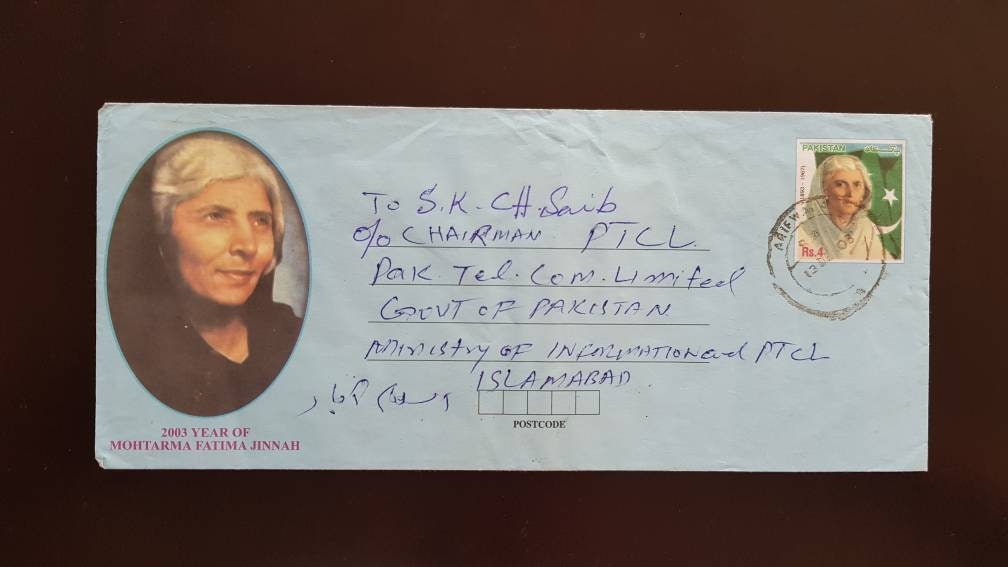 2003 YEAR OF
MOHTARMA FATIMA JINNAH
PAKISTAN پاکستان
Rs.4
ARIFW
To S.K. CH. Saib
c/o CHAIRMAN PTCL
Pak Tel. Com. Limited
GOVT OF PAKISTAN
MINISTRY OF INFORMATION and PTCL
ISLAMABAD
اسلام آباد
POSTCODE